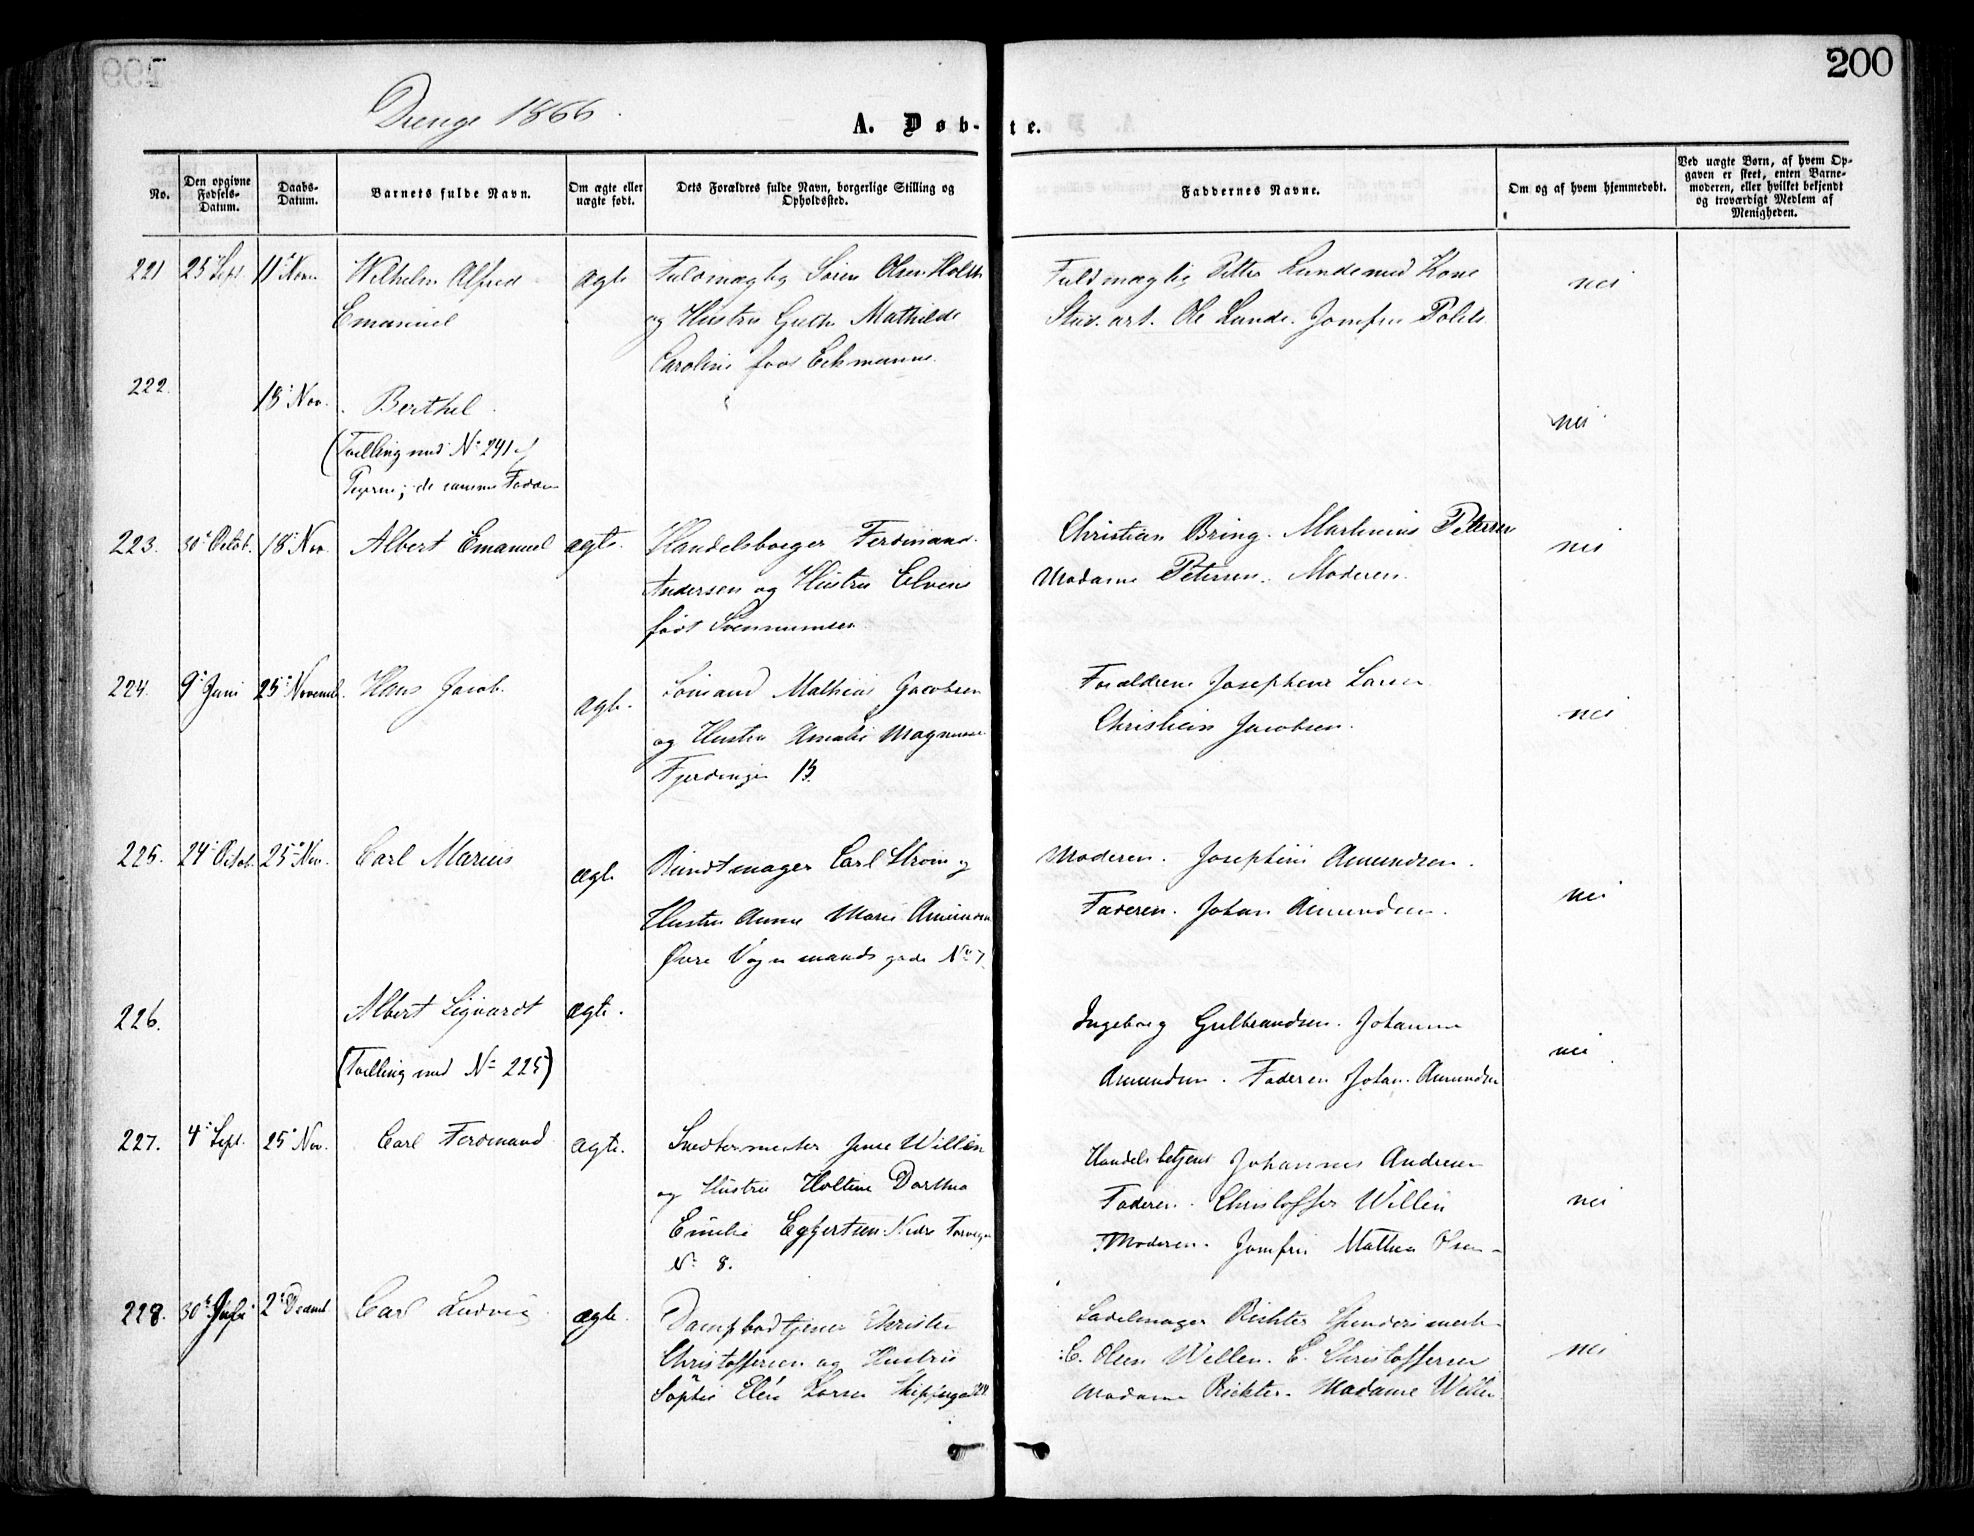 200
Drenge 1866.
A. Døb-te.
No.
Den opgivne Fødsels-Datum.
Daabs-Datum.
Barnets fulde Navn.
Om ægte eller uægte født.
Dets Forældres fulde Navn, borgerlige Stilling og Opholdssted.
Faddernes Navne.
Om og af hvem hjemmedøbt.
Ved uægte Børn, af hvem Opgaven er skeet, enten Barnemoderen, eller hvilket bekjendt og troværdigt Medlem af Menigheden.
221 25 Sept. 11 Nov. Wilhelm Alfred ægte Fuldmægtig Sören Olsen Holst Fuldmægtig Petter Lunde med Kone nei
Emanuel og Hustru Mathilde Stud. art. Ole Lunde. Jomfru
Caroline født Eckmann
222. 18 Nov. Berthel. nei
(Tvilling med No 241 af
Pigerne; de samme
223. 30 Octob. 18 Nov. Albert Emanuel ægte. Handelsborger Ferdinand Christian Bring. Martinius Petersen nei
Andersen og Hustru Elvine Madame Petersen. Moderen.
født
224. 9 Juni 25 Novemb. Hans Jacob. ægte. Sömand Mathias Jacobsen Forældrene Josephine Larsen nei
og Hustru Amalie Magnusen Christian Jacobsen.
Fjerdingen 13.
225. 24 Octob. 25 Nov. Carl Marius ægte Bundtmager Carl Strøm og Moderen. Josephine Amundsen. nei
Hustru Anna Marie Amundsen Faderen. Johan Amundsen.
Øvre Vognmandsgade No 7
226. Albert Sigvardt ægte. Ingeborg Gulbrandsen. Johanne nei
(Tvilling med No 225) Amundsen. Faderen Johan Amundsen
227. 4 Sept. 25 Nov. Carl Ferdinand ægte. Jens Willén Handelsbetjent Johannes Andresen
og Hustru Holtine Dorthea Faderen. Christoffer Willén nei
Emilie Eggertsen Nedre Torvegd Moderen. Jomfru Mathea Olsen
No 8.
228. 30 2 Decemb Carl Ludvig ægte. Dampbadtjener Christen Sadelmager Richter
Christoffersen og Hustru C. Olsen Willén. C. Christoffersen nei
Sophie Eleń Larsen Madame Richter. Madame Willén